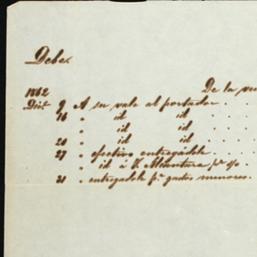 Debe.
De la
1862
Dic.e 9 A su vale al portador
16 " id id
" id id
20 " id id
27 " efectivo entregadole
" id á V. Alcantara p.r s/o.
31 " entregadole p.a gastos menores.